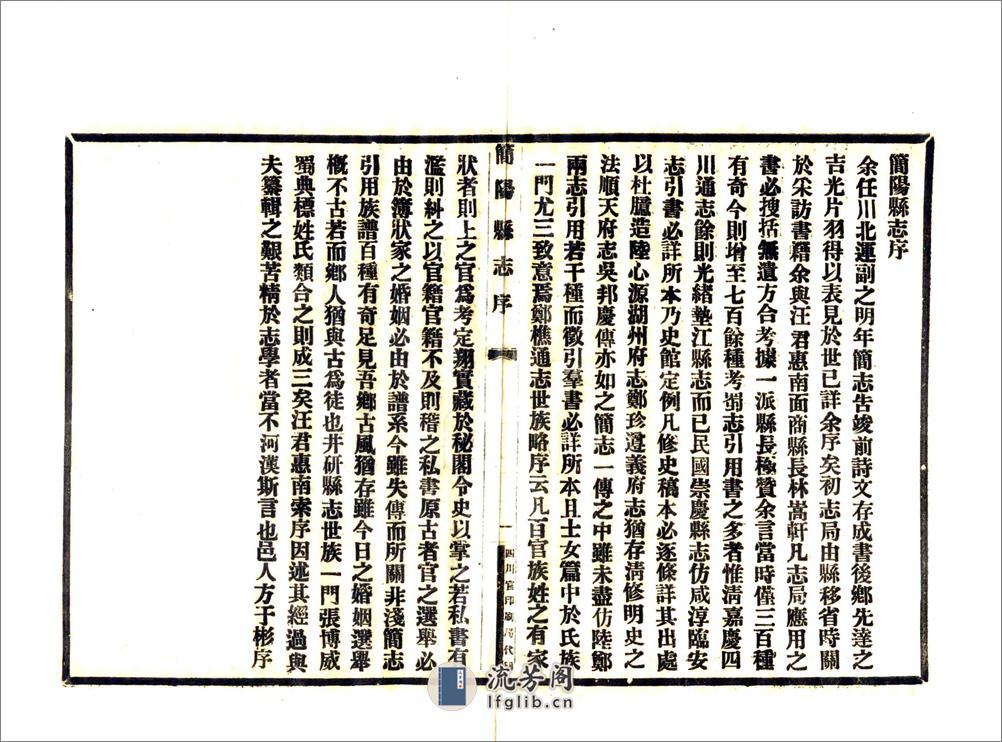 簡陽縣志序
余任川北運副之明年簡志告竣前詩文存成書後鄉先達之
吉光片羽得以表見於世已詳余序矣初志局由縣移省時關
於采訪書籍余與汪君惠南面商縣長林嵩軒凡志局應用之
書必搜括無遺方合考據一派縣長極贊余言當時僅三百種
有奇今則增至七百餘種考蜀志引用書之多者惟淸嘉慶四
川通志餘則光緖墊江縣志而已民國崇慶縣志仿咸淳臨安
志引書必詳所本乃史館定例凡修史稿本必逐條詳其出處
以杜臆造陸心源湖州府志鄭珍遵義府志猶存淸修明史之
法順天府志吳邦慶傳亦如之簡志一傳之中雖未盡仿陸鄭
兩志引用若干種而徵引羣書必詳所本且士女篇中於氏族
一門尤三致意焉鄭樵通志世族略序云凡百官族姓之有家
簡陽縣志序
一
四川官印刷局代印
狀者則上之官爲考定翔實藏於秘閣令史以掌之若私書有
濫則糾之以官籍官籍不及則稽之私書原古者官之選舉必
由於簿狀家之婚姻必由於譜系今雖失傳而所關非淺簡志
引用族譜百種有奇足見吾鄉古風猶存雖今日之婚姻選舉
槪不古若而鄉人猶與古爲徒也井硏縣志世族一門張博威
蜀典標姓氏類合之則成三矣汪君惠南索序因述其經過與
夫纂輯之艱苦精於志學者當不河漢斯言也邑人方于彬序
流芳阁
lfglib.cn